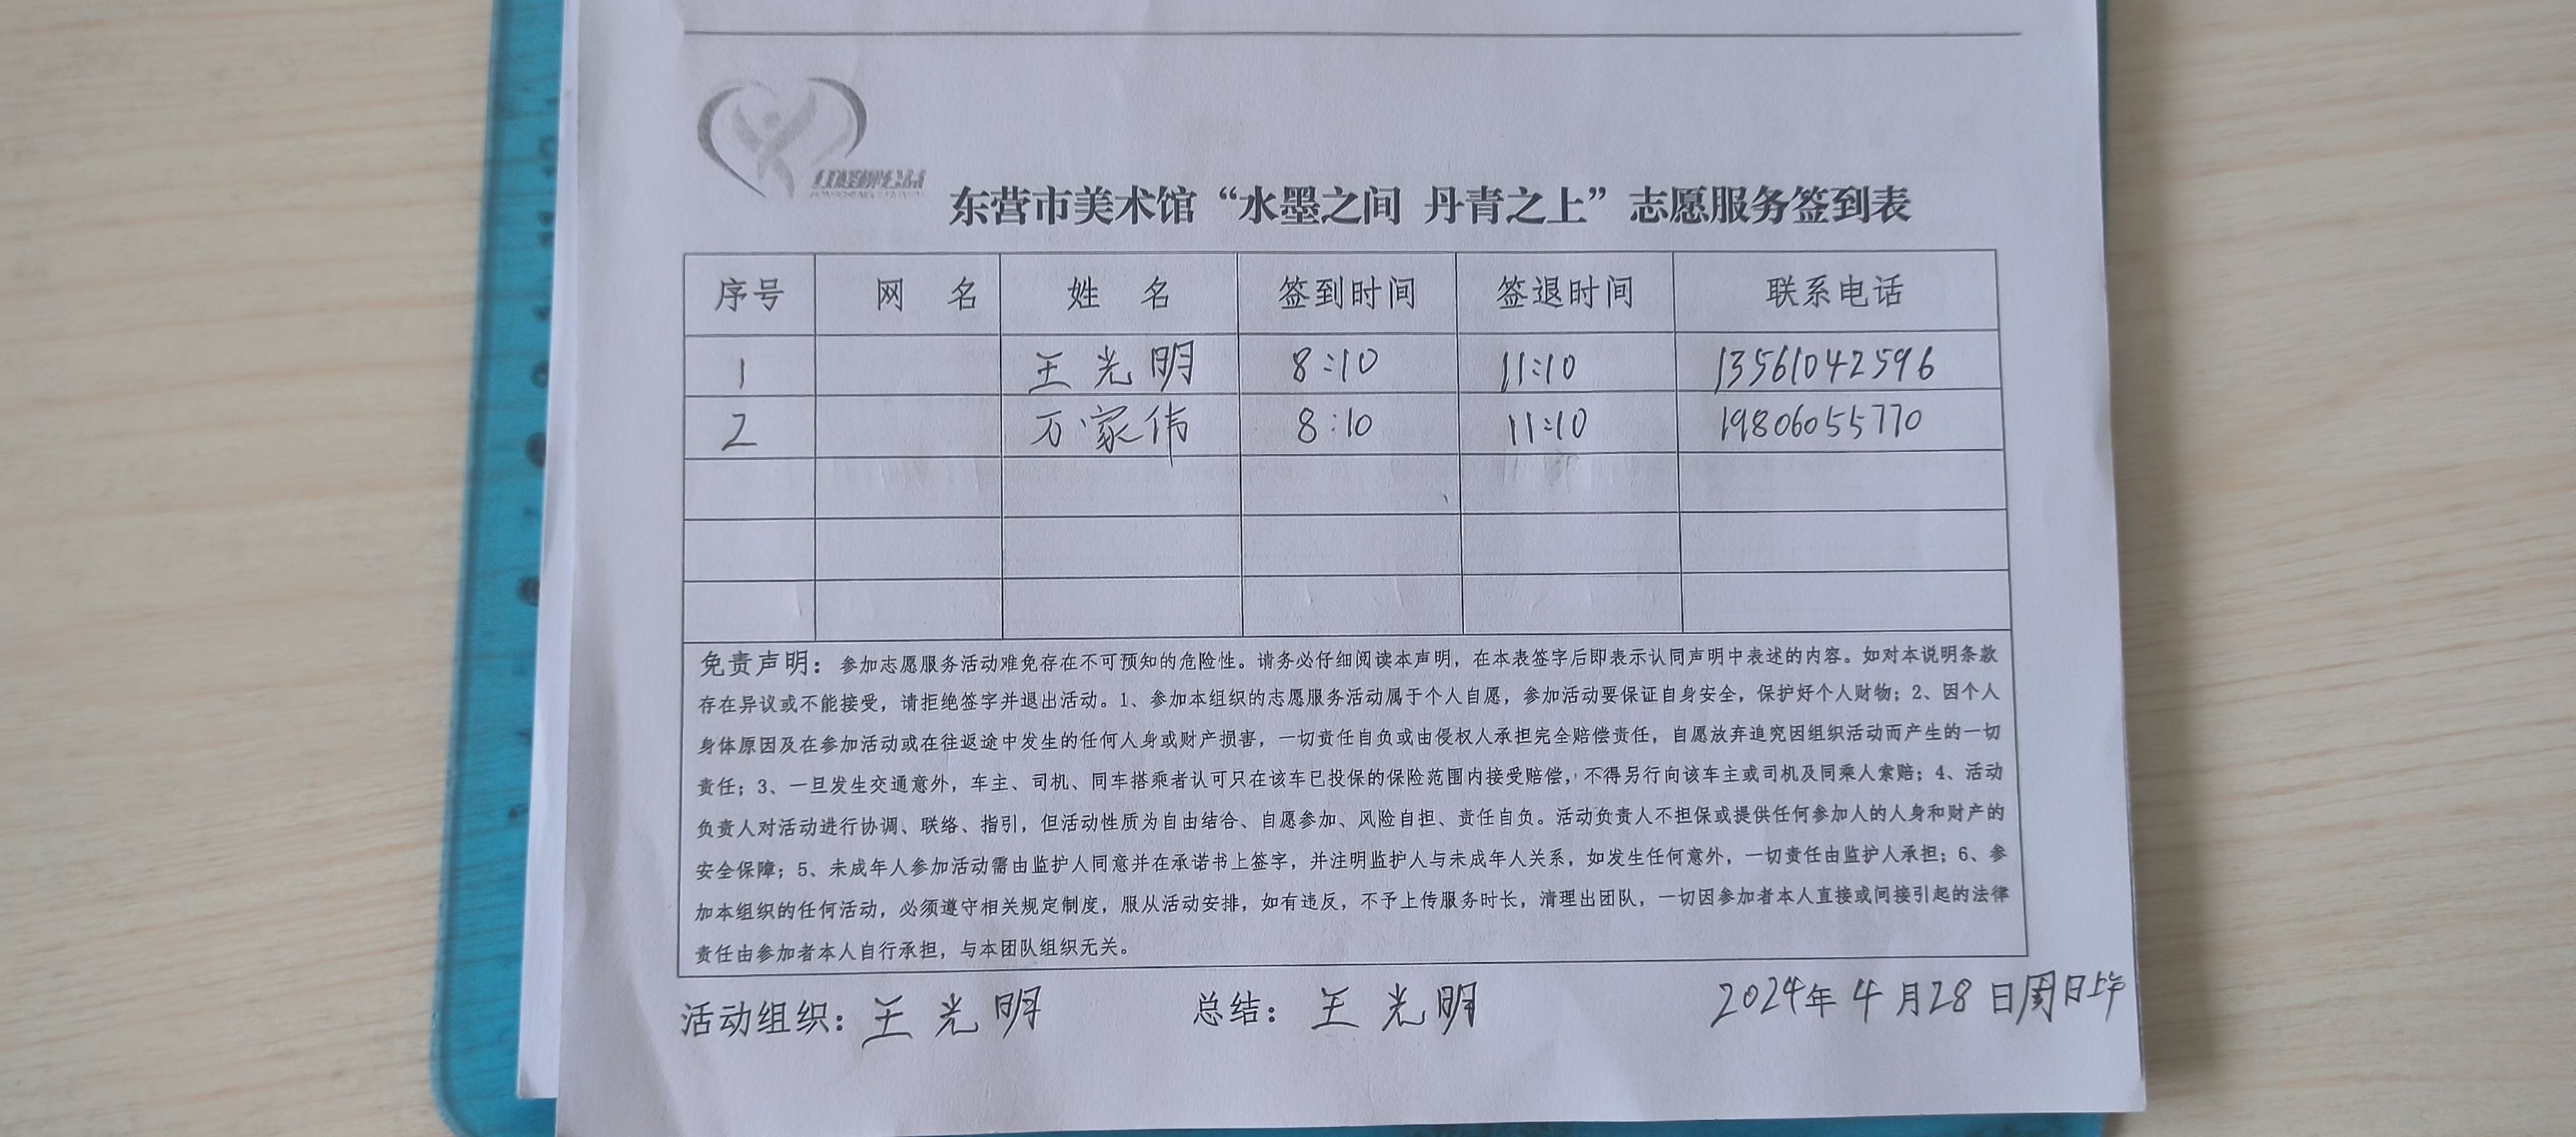 红柽柳公益
东营市美术馆“水墨之间 丹青之上”志愿服务签到表
序号 网 名 姓 名 签到时间 签退时间 联系电话
1 王光明 8:10 11:10 13561042596
2 万家伟 8:10 11:10 19806055770
免责声明：参加志愿服务活动难免存在不可预知的危险性。请务必仔细阅读本声明，在本表签字后即表示认同声明中表述的内容。如对本说明条款
存在异议或不能接受，请拒绝签字并退出活动。1、参加本组织的志愿服务活动属于个人自愿，参加活动要保证自身安全，保护好个人财物；2、因个人
身体原因及在参加活动或在往返途中发生的任何人身或财产损害，一切责任自负或由侵权人承担完全赔偿责任，自愿放弃追究因组织活动而产生的一切
责任；3、一旦发生交通意外，车主、司机、同车搭乘者认可只在该车已投保的保险范围内接受赔偿，不得另行向该车主或司机及同乘人索赔；4、活动
负责人对活动进行协调、联络、指引，但活动性质为自由结合、自愿参加、风险自担、责任自负。活动负责人不担保或提供任何参加人的人身和财产的
安全保障；5、未成年人参加活动需由监护人同意并在承诺书上签字，并注明监护人与未成年人关系，如发生任何意外，一切责任由监护人承担；6、参
加本组织的任何活动，必须遵守相关规定制度，服从活动安排，如有违反，不予上传服务时长，清理出团队，一切因参加者本人直接或间接引起的法律
责任由参加者本人自行承担，与本团队组织无关。
活动组织：王光明 总结：王光明 2024年4月28日周日上午